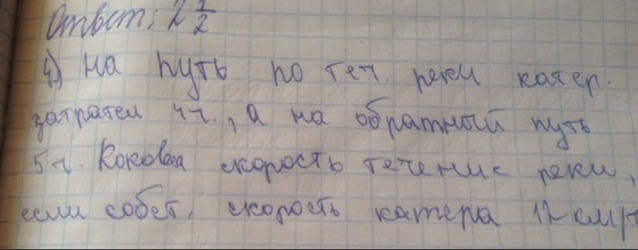 Ответ: 2 1/2
4) На путь по теч. реки катер.
затрател 4ч., а на обратный путь
5ч. Кокова скорость течение реки,
если собст. скорость катера 12 км/ч